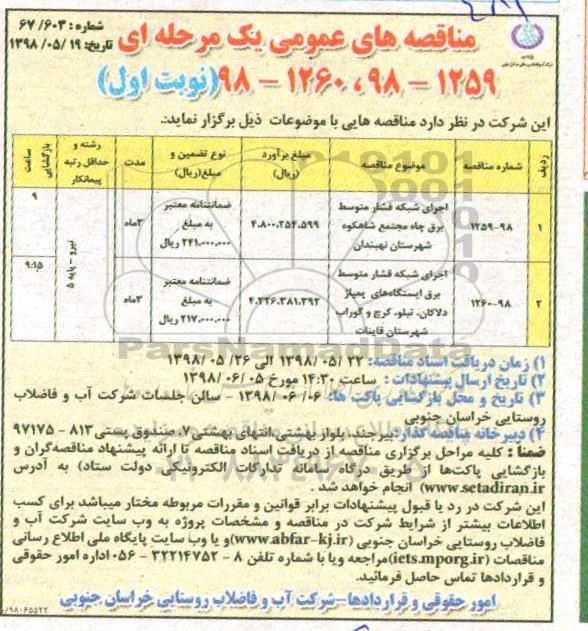 شماره: ۶۷/۶۰۳
تاریخ: ۱۳۹۸/۰۵/۱۹
مناقصه های عمومی یک مرحله ای
۱۲۵۹ – ۹۸ ، ۱۲۶۰ – ۹۸ (نوبت اول)
این شرکت در نظر دارد مناقصه هایی با موضوعات ذیل برگزار نماید:
ردیف | شماره مناقصه | موضوع مناقصه | مبلغ برآورد (ریال) | نوع تضمین و مبلغ(ریال) | مدت | رشته و حداقل رتبه پیمانکار | بازگشایی ساعت
۱ | ۱۲۵۹-۹۸ | اجرای شبکه فشار متوسط برق چاه مجتمع شاهکوه شهرستان نهبندان | ۴.۸۰۰.۲۵۴.۵۹۹ | ضمانتنامه معتبر به مبلغ ۲۴۱.۰۰۰.۰۰۰ ریال | ۳ماه | نیرو - پایه ۵ | ۹
۲ | ۱۲۶۰-۹۸ | اجرای شبکه فشار متوسط برق ایستگاه‌های پمپاژ دلاکان، تیلو، کرچ و گوراب شهرستان قاینات | ۴.۳۲۶.۳۸۱.۳۹۲ | ضمانتنامه معتبر به مبلغ ۲۱۷.۰۰۰.۰۰۰ ریال | ۳ماه | ۹:۱۵
ParsNamadData
۱) زمان دریافت اسناد مناقصه: ۲۲ /۰۵ /۱۳۹۸ الی ۲۶ /۰۵ /۱۳۹۸
۲) تاریخ ارسال پیشنهادات : ساعت ۱۴:۳۰ مورخ ۰۵ /۰۶ /۱۳۹۸
۳) تاریخ و محل بازگشایی پاکت ها: ۰۶ /۰۶ /۱۳۹۸ - سالن جلسات شرکت آب و فاضلاب
روستایی خراسان جنوبی
۴) دبیرخانه مناقصه گذار: بیرجند، بلوار بهشتی، انتهای بهشتی ۷، صندوق پستی ۸۱۳ – ۹۷۱۷۵
ضمناً : کلیه مراحل برگزاری مناقصه از دریافت اسناد مناقصه تا ارائه پیشنهاد مناقصه‌گران و
بازگشایی پاکت‌ها از طریق درگاه سامانه تدارکات الکترونیکی دولت ستاد) به آدرس
www.setadiran.ir) انجام خواهد شد .
این شرکت در رد یا قبول پیشنهادات برابر قوانین و مقررات مربوطه مختار میباشد برای کسب
اطلاعات بیشتر از شرایط شرکت در مناقصه و مشخصات پروژه به وب سایت شرکت آب و
فاضلاب روستایی خراسان جنوبی (www.abfar-kj.ir)و یا وب سایت پایگاه ملی اطلاع رسانی
مناقصات (iets.mporg.ir)مراجعه ویا با شماره تلفن ۸ – ۳۲۲۱۴۷۵۲ – ۰۵۶ اداره امور حقوقی
و قراردادها تماس حاصل فرمائید.
امور حقوقی و قراردادها-شرکت آب و فاضلاب روستایی خراسان جنوبی
۹۸۰۶۵۵۲۲